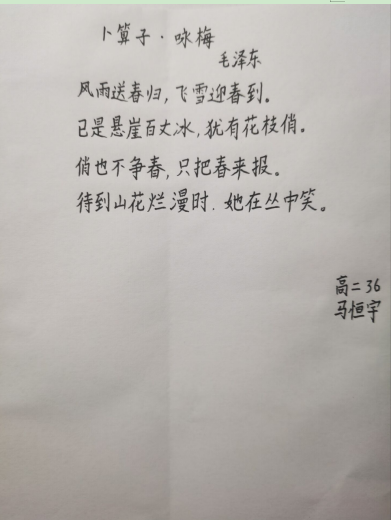 卜算子·咏梅
毛泽东
风雨送春归,飞雪迎春到。
已是悬崖百丈冰,犹有花枝俏。
俏也不争春,只把春来报。
待到山花烂漫时.她在丛中笑。
高二36
马恒宇